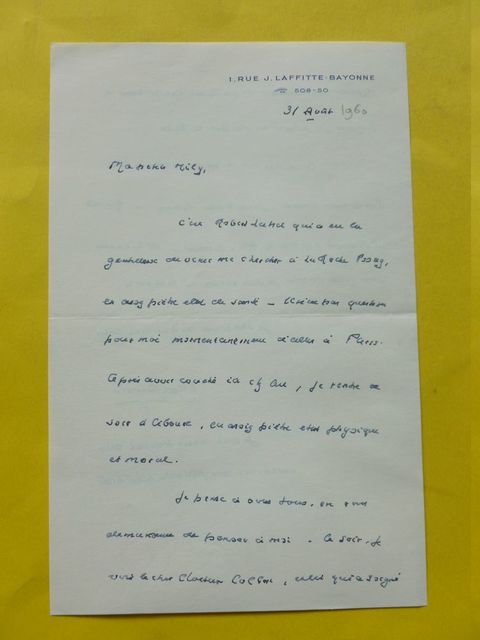 1, RUE J. LAFFITTE - BAYONNE
☎ 508-50
31 Août 1960
Ma chère Mily,
c'est Robert qui a eu la
gentillesse de venir me chercher à la
en assez piètre état de santé - question
pour moi momentanément d'aller à Paris.
Après avoir couché ici , je rentre ce
soir à Ciboure, en assez piètre état physique
et moral.
Je pense à vous tous, en vous
demandant de penser à moi. Ce soir, je
vois le cher Docteur , celui qui a soigné